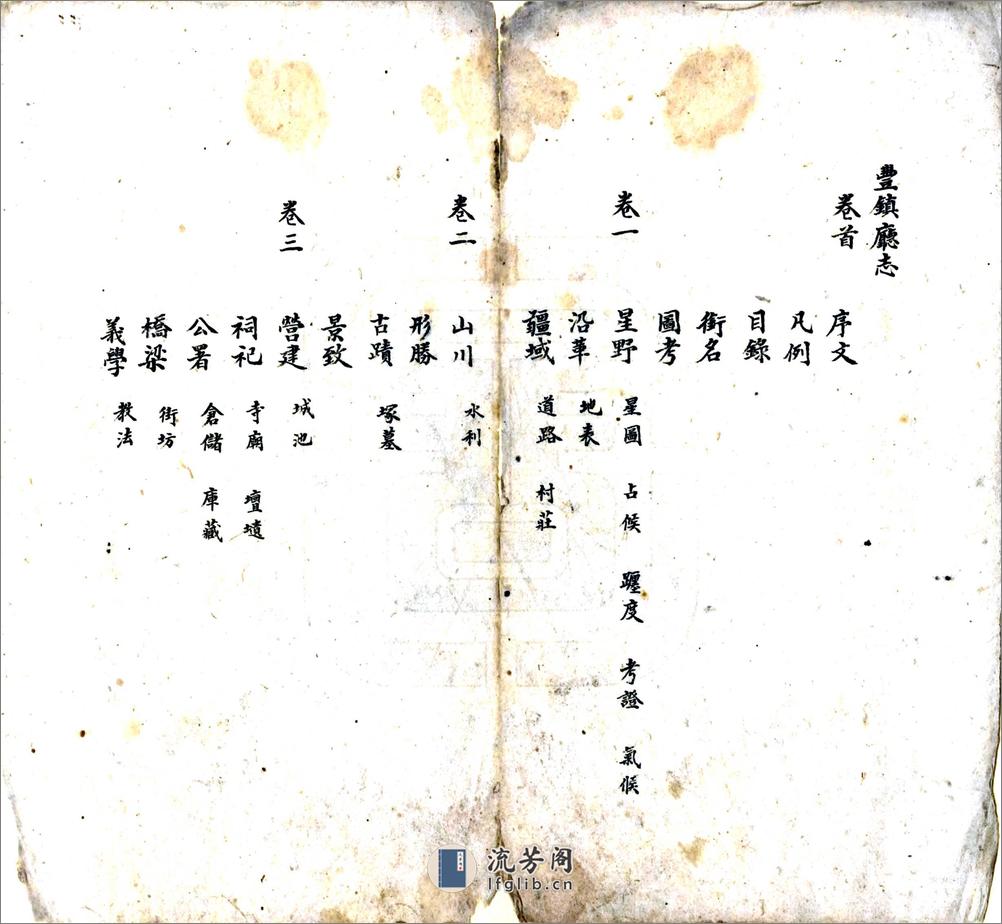 豐鎮廳志
卷首
序文
凡例
目錄
銜名
圖考
卷一
星野 星圖 占候 躔度 考證 氣候
沿革 地表
疆域 道路 村莊
卷二
山川 水利
形勝
古蹟 塚墓
景致
卷三
營建 城池
祠祀 寺廟 壇壝
公署 倉儲 庫藏
橋梁 街坊
義學 教法
流芳阁
lfglib.cn